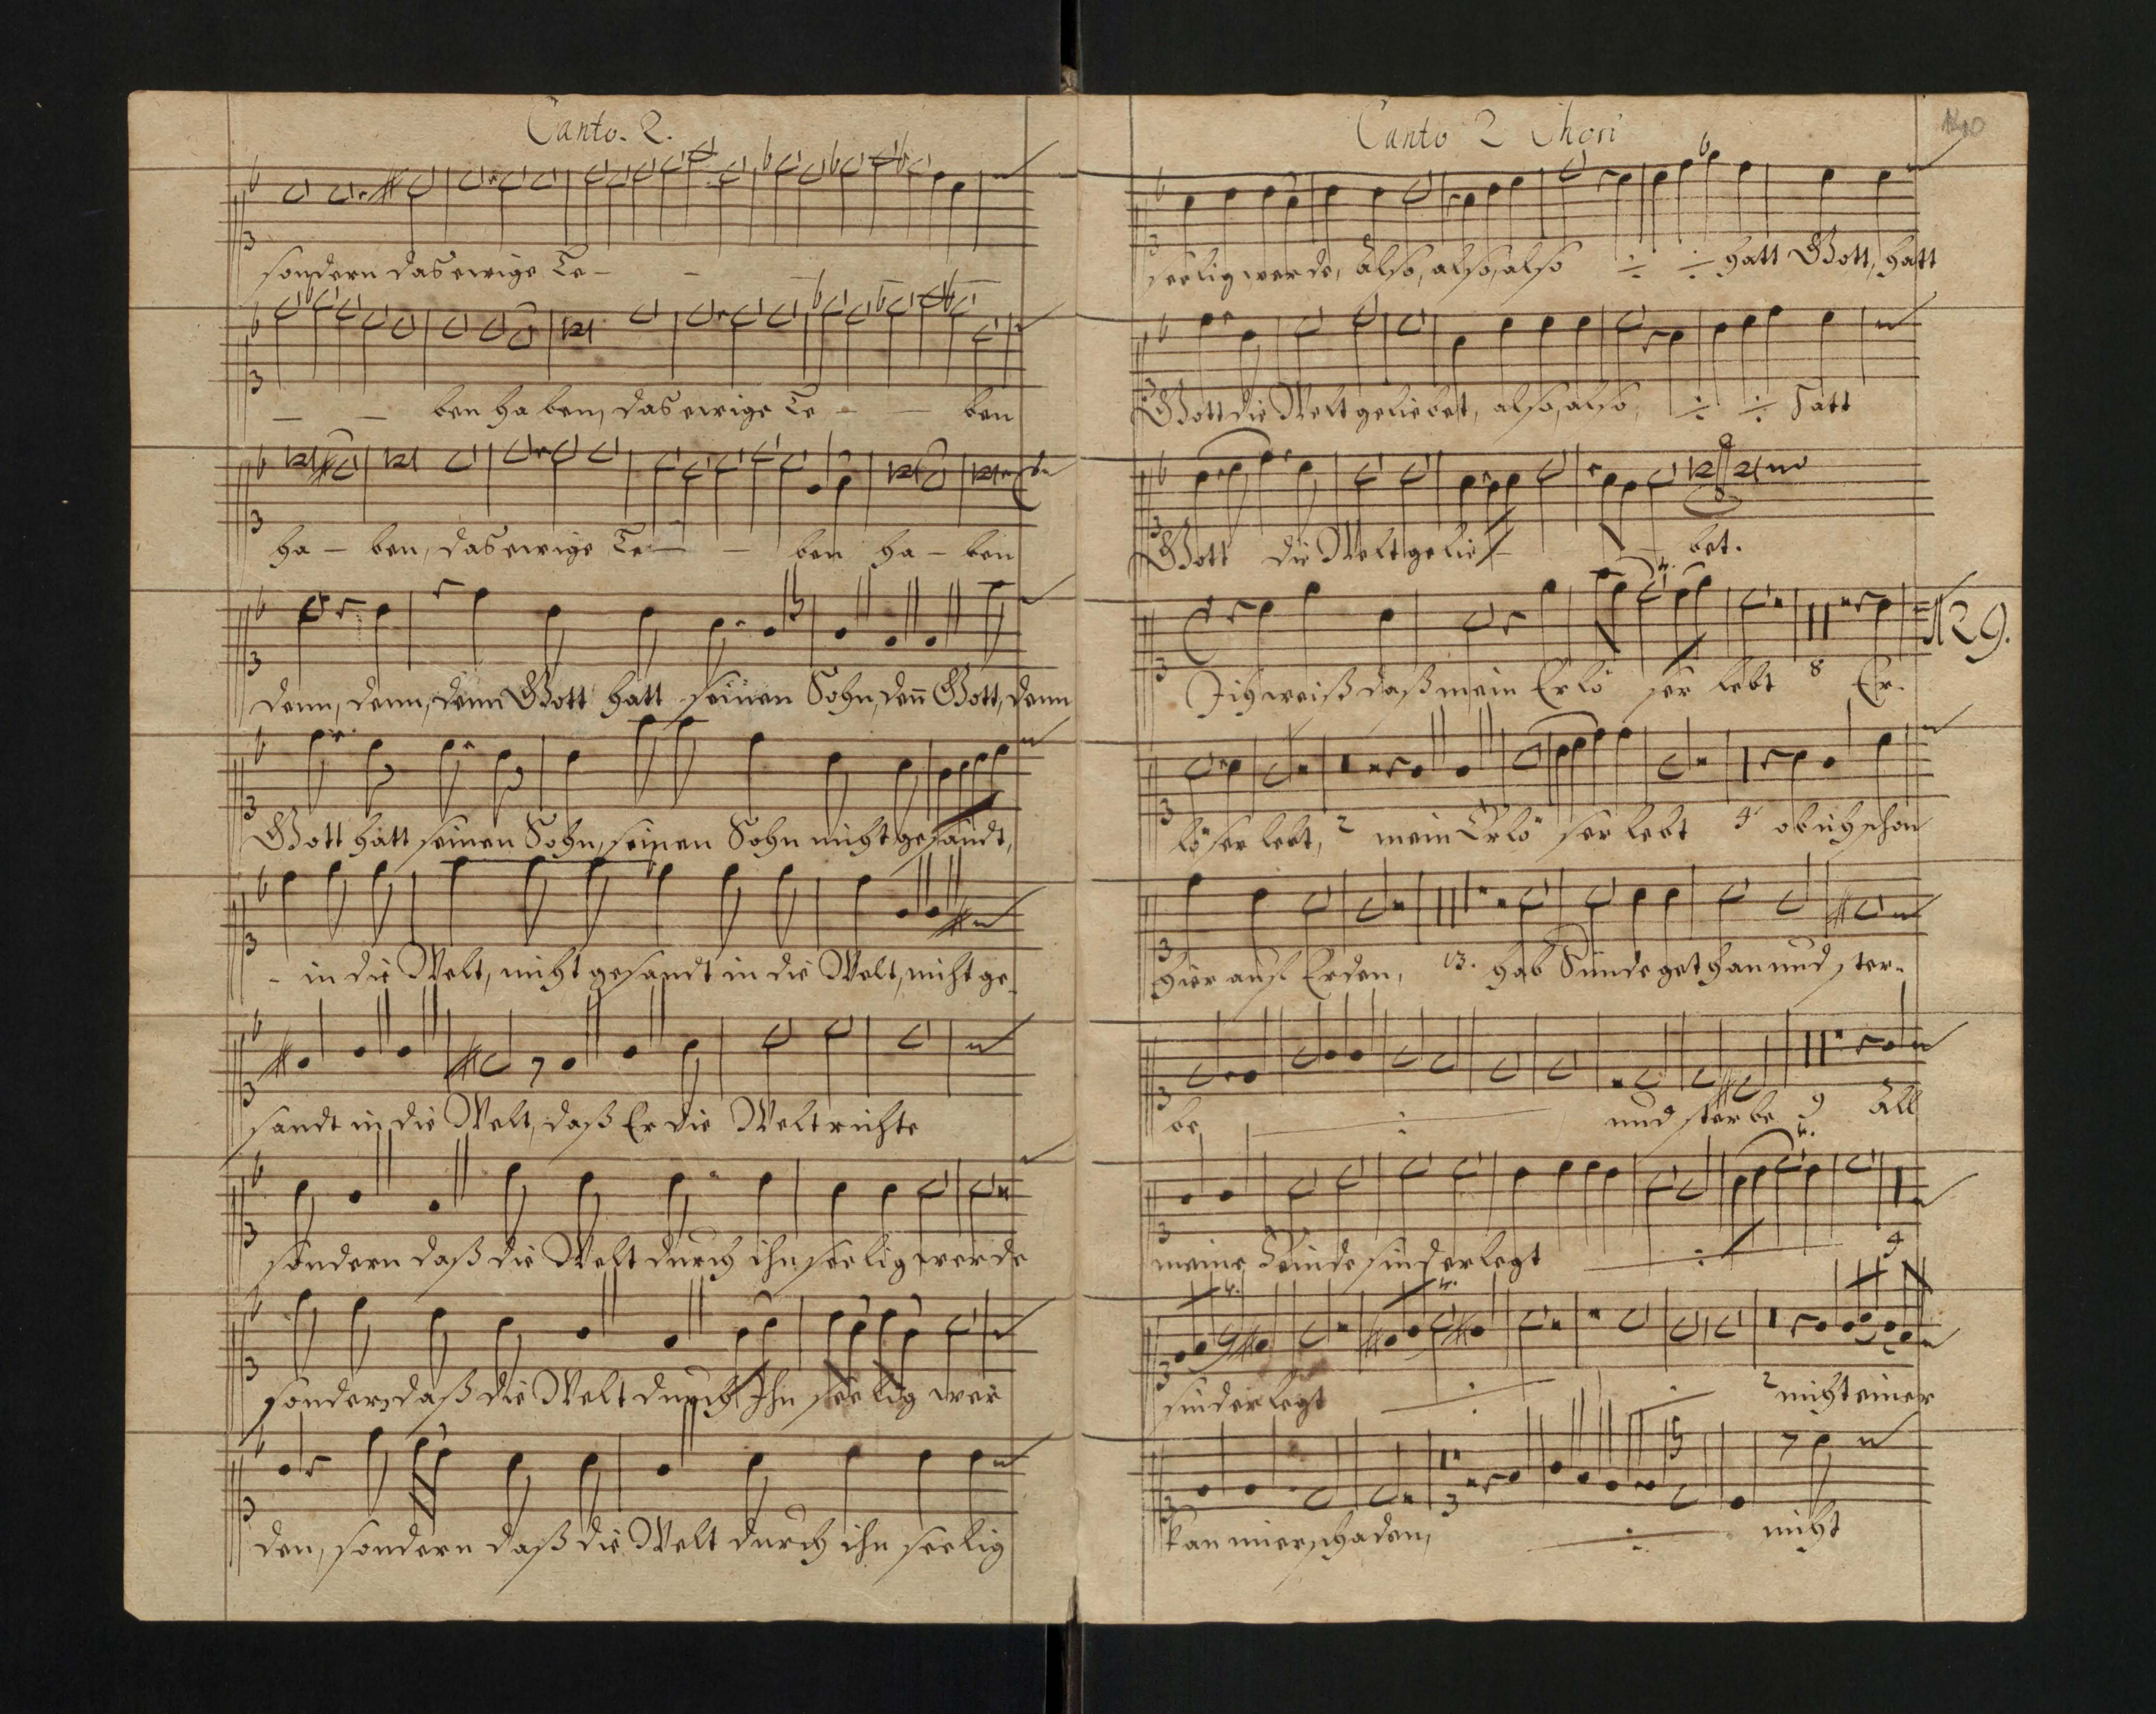 Canto. 2.
sondern das ewige Le-
- - ben haben, das ewige Le - - ben
ha - ben, das ewige Le - - ben ha - ben
denn, denn, denn Gott hatt seinen Sohn, deñ Gott, denn
Gott hatt seinen Sohn, seinen Sohn nicht gesandt,
- in die Welt, nicht gesandt in die Welt, nicht ge-
sandt in die Welt, daß Er die Welt richte
sondern daß die Welt durch ihn seelig werde
sondern daß die Welt durch Ihn seelig wer
den, sondern daß die Welt durch ihn seelig
Canto 2 Chori
seelig werde, Also, also, also ÷ ÷ hatt Gott, hatt
Gott die Welt geliebet, also, also, ÷ ÷ Hatt
Gott die Welt gelie - bet.
N29.
Ich weiß daß mein Erlö ser lebt 8 Er-
löser lebt, 2 mein Erlö ser lebt 4 ob ich schon
hier auf Erden, 13. hab Sünde gethan und ster-
be ÷ und sterbe 9 All
meine Feinde sind erlegt ÷ 4
sind erlegt ÷ ÷ 2 nicht einer
kan mier schaden, ÷ nicht